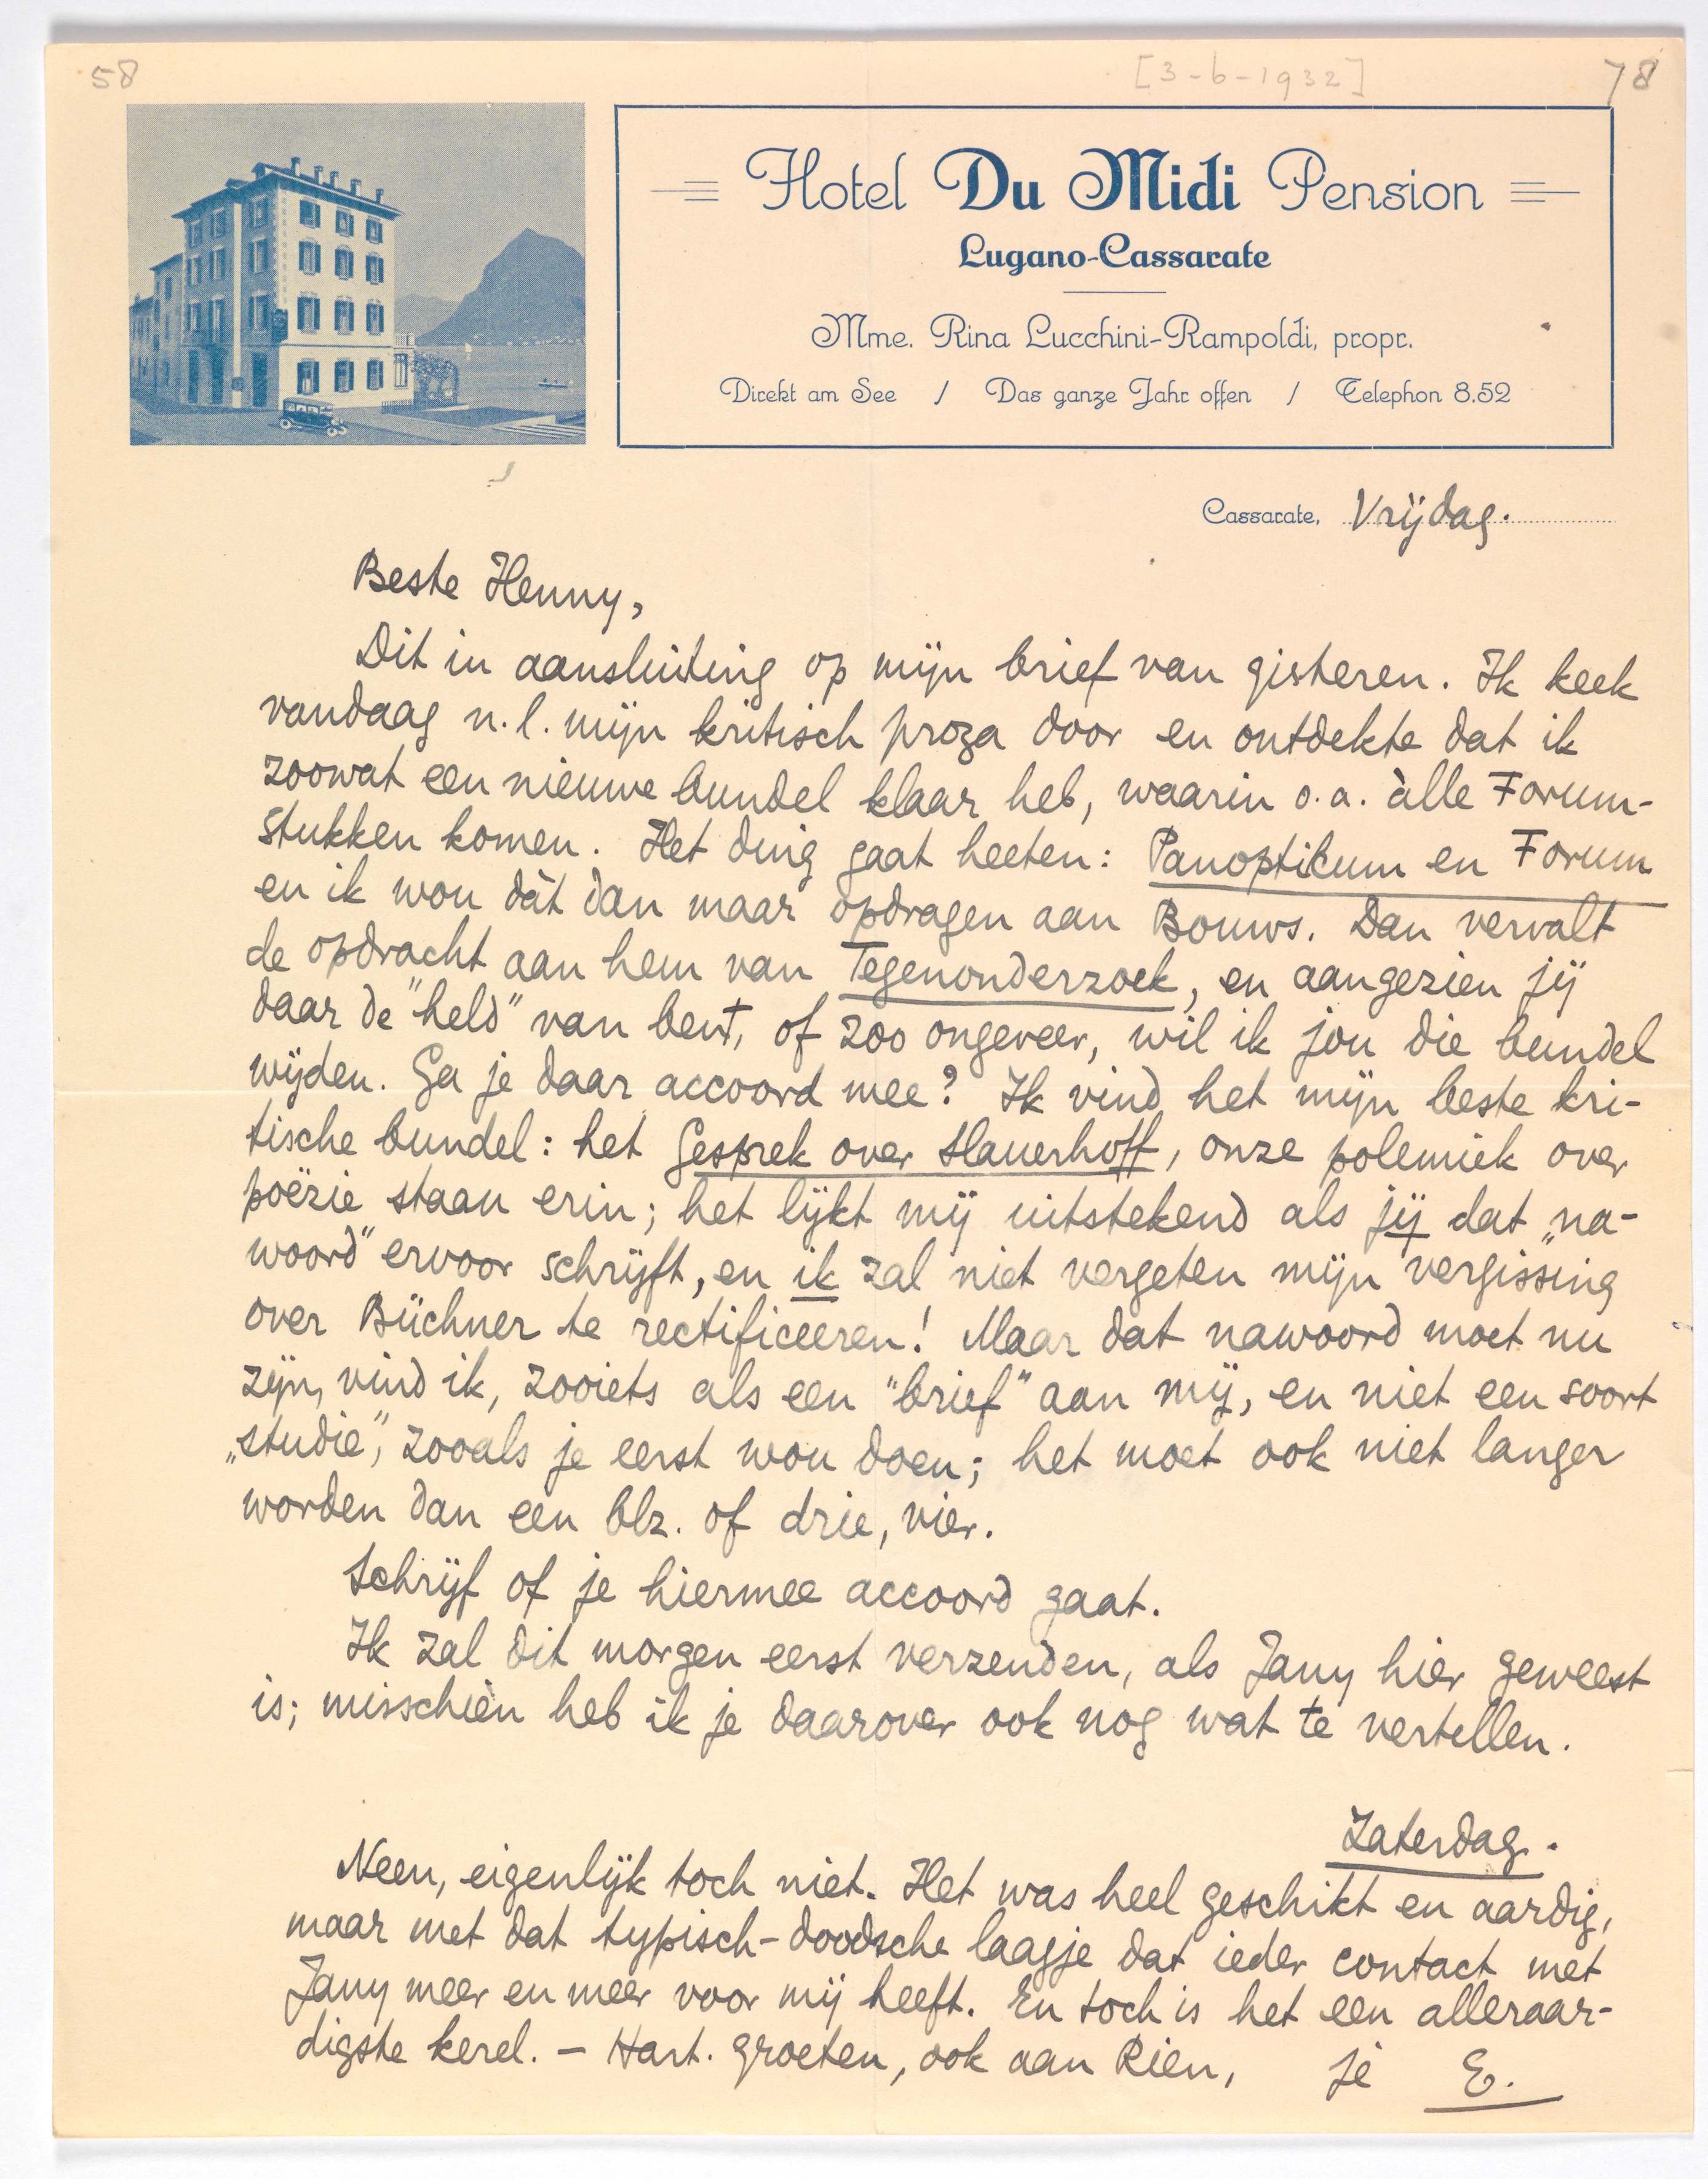 58
[3-6-1932]
78
Hotel Du Midi Pension
Lugano-Cassarate
Mme. Rina Lucchini-Rampoldi, propr.
Direkt am See / Das ganze Jahr offen / Telephon 8.52
Cassarate, Vrijdag.
Beste Henny,
Dit in aansluiting op mijn brief van gisteren. Ik keek
vandaag n.l. mijn kritisch proza door en ontdekte dat ik
zoowat een nieuwe bundel klaar heb, waarin o.a. àlle Forum-
stukken komen. Het ding gaat heeten: Panopticum en Forum
en ik wou dàt dan maar opdragen aan Bouws. Dan vervalt
de opdracht aan hem van Tegenonderzoek, en aangezien jij
daar de "held" van bent, of zoo ongeveer, wil ik jou die bundel
wijden. Ga je daar accoord mee? Ik vind het mijn beste kri-
tische bundel: het Gesprek over Slauerhoff, onze polemiek over
poëzie staan erin; het lijkt mij uitstekend als jij dat „na-
woord" ervoor schrijft, en ik zal niet vergeten mijn vergissing
over Büchner te rectificeeren! Maar dat nawoord moet nu
zijn, vind ik, zooiets als een "brief" aan mij, en niet een soort
„studie", zooals je eerst wou doen; het moet ook niet langer
worden dan een blz. of drie, vier.
Schrijf of je hiermee accoord gaat.
Ik zal dit morgen eerst verzenden, als Jany hier geweest
is; misschien heb ik je daarover ook nog wat te vertellen.
Zaterdag.
Neen, eigenlijk toch niet. Het was heel geschikt en aardig,
maar met dat typisch-doodsche laagje dat ieder contact met
Jany meer en meer voor mij heeft. En toch is het een alleraar-
digste kerel. – Hart. groeten, ook aan Rien, je E.